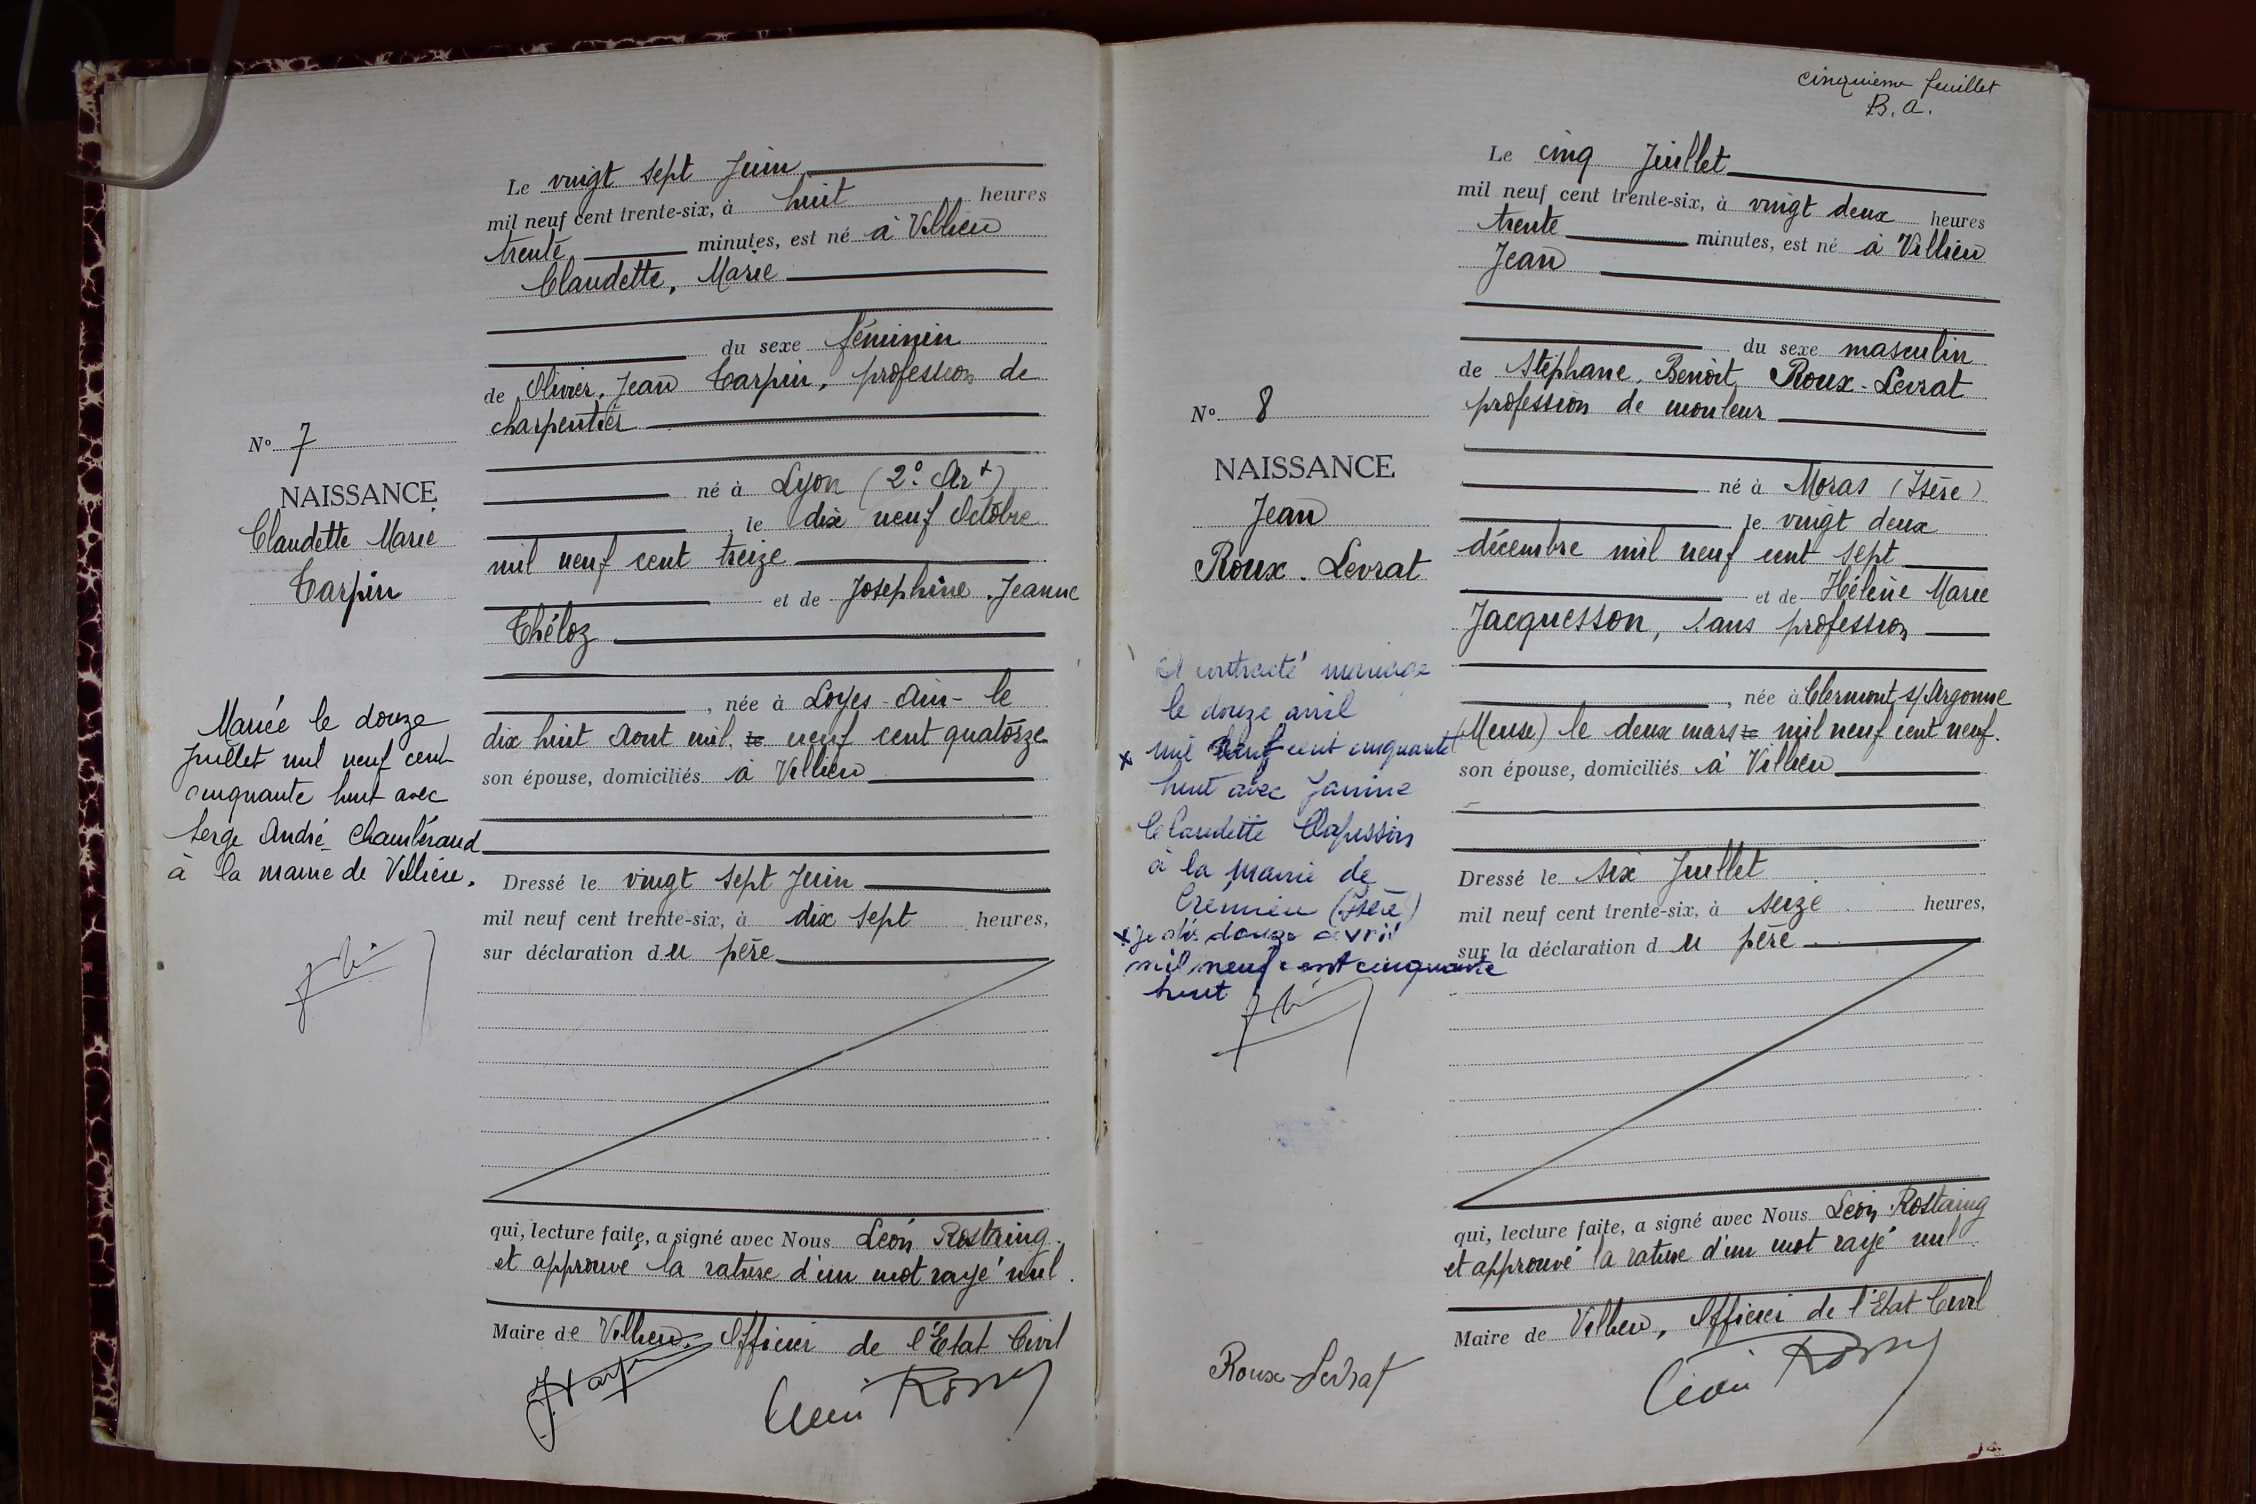 Le vingt sept Juin
mil neuf cent trente-six, à huit heures
trente minutes, est né à Villieu
Claudette, Marie
du sexe féminin
de Olivier, Jean Tarpin, profession de
charpentier
né à Lyon (2e Art)
, le dix neuf Octobre
mil neuf cent treize
et de Joséphine Jeanne
Théloz
, née à Loyes - Ain - le
dix huit Aout mil le neuf cent quatorze
son épouse, domiciliés à Villieu
Dressé le vingt sept Juin
mil neuf cent trente-six, à dix sept heures,
sur déclaration du père
qui, lecture faite, a signé avec Nous Léon Rostaing
et approuvé la rature d'un mot rayé nul.
Maire de Villieu, Officier de l'Etat Civil
N° 7
NAISSANCE
Claudette Marie
Tarpin
Mariée le douze
juillet mil neuf cent
cinquante huit avec
Serge André Chambéraud
à la mairie de Villieu.
cinquième feuillet
B. A.
Le cinq Juillet
mil neuf cent trente-six, à vingt deux heures
trente minutes, est né à Villieu
Jean
du sexe masculin
de Stéphane, Benoît Roux-Levrat
profession de mouleur
né à Moras (Isère)
le vingt deux
décembre mil neuf cent sept
et de Hélène Marie
Jacquesson, sans profession
, née à Clermont s/Argonne
(Meuse) le deux mars le mil neuf cent neuf.
son épouse, domiciliés à Villieu
Dressé le six Juillet
mil neuf cent trente-six, à seize heures,
sur la déclaration du père
qui, lecture faite, a signé avec Nous Léon Rostaing
et approuvé la rature d'un mot rayé nul
Maire de Villieu, Officier de l'Etat Civil
N° 8
NAISSANCE
Jean
Roux-Levrat
A contracté mariage
le douze avril
x mil neuf cent cinquante
huit avec Janine
Claudette
à la mairie de
Crémieu (Isère)
x je dis douze avril
mil neuf cent cinquante
huit
Roux-Levrat